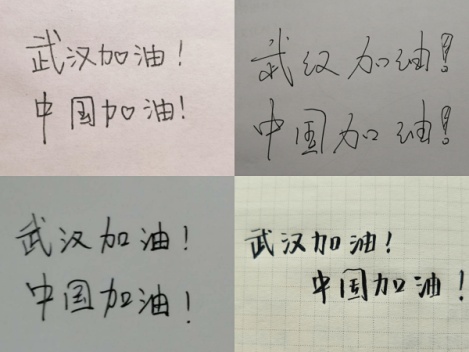 武汉加油！
中国加油！
武汉加油！
中国加油！
武汉加油！
中国加油！
武汉加油！
中国加油！